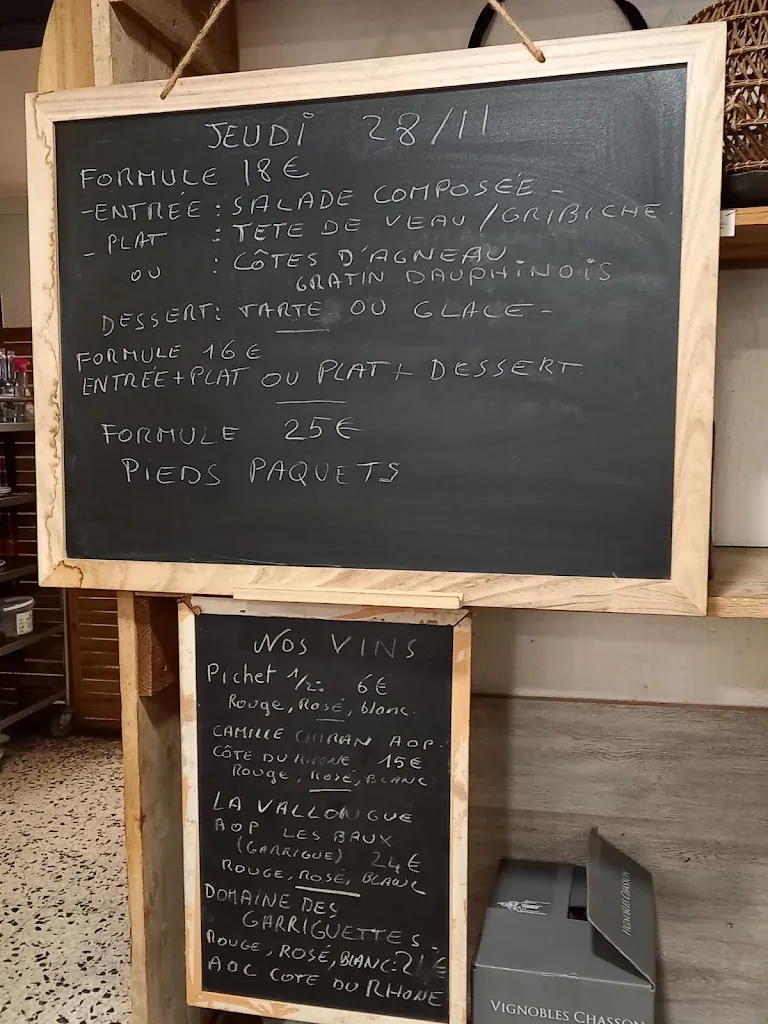 JEUDI 28/11
FORMULE 18€
-ENTRÉE : SALADE COMPOSÉE -
- PLAT : TETE DE VEAU / GRIBICHE
OU : CÔTES D'AGNEAU
GRATIN DAUPHINOIS
DESSERT: TARTE OU GLACE -
FORMULE 16€
ENTRÉE+PLAT OU PLAT + DESSERT
FORMULE 25€
PIEDS PAQUETS
NOS VINS
Pichet 1/2: 6€
Rouge, Rosé, blanc.
CAMILLE AOP.
CÔTE DU RHONE 15€
ROUGE, ROSÉ, BLANC
LA VALLONGUE
AOP LES BAUX
(GARRIGUE) 24€
ROUGE, ROSÉ, BLANC
DOMAINE DES
GARRIGUETTES -
ROUGE, ROSÉ, BLANC:
AOC COTE DU RHONE
VIGNOBLES CHASSON
VIGNOBLES CHASSON